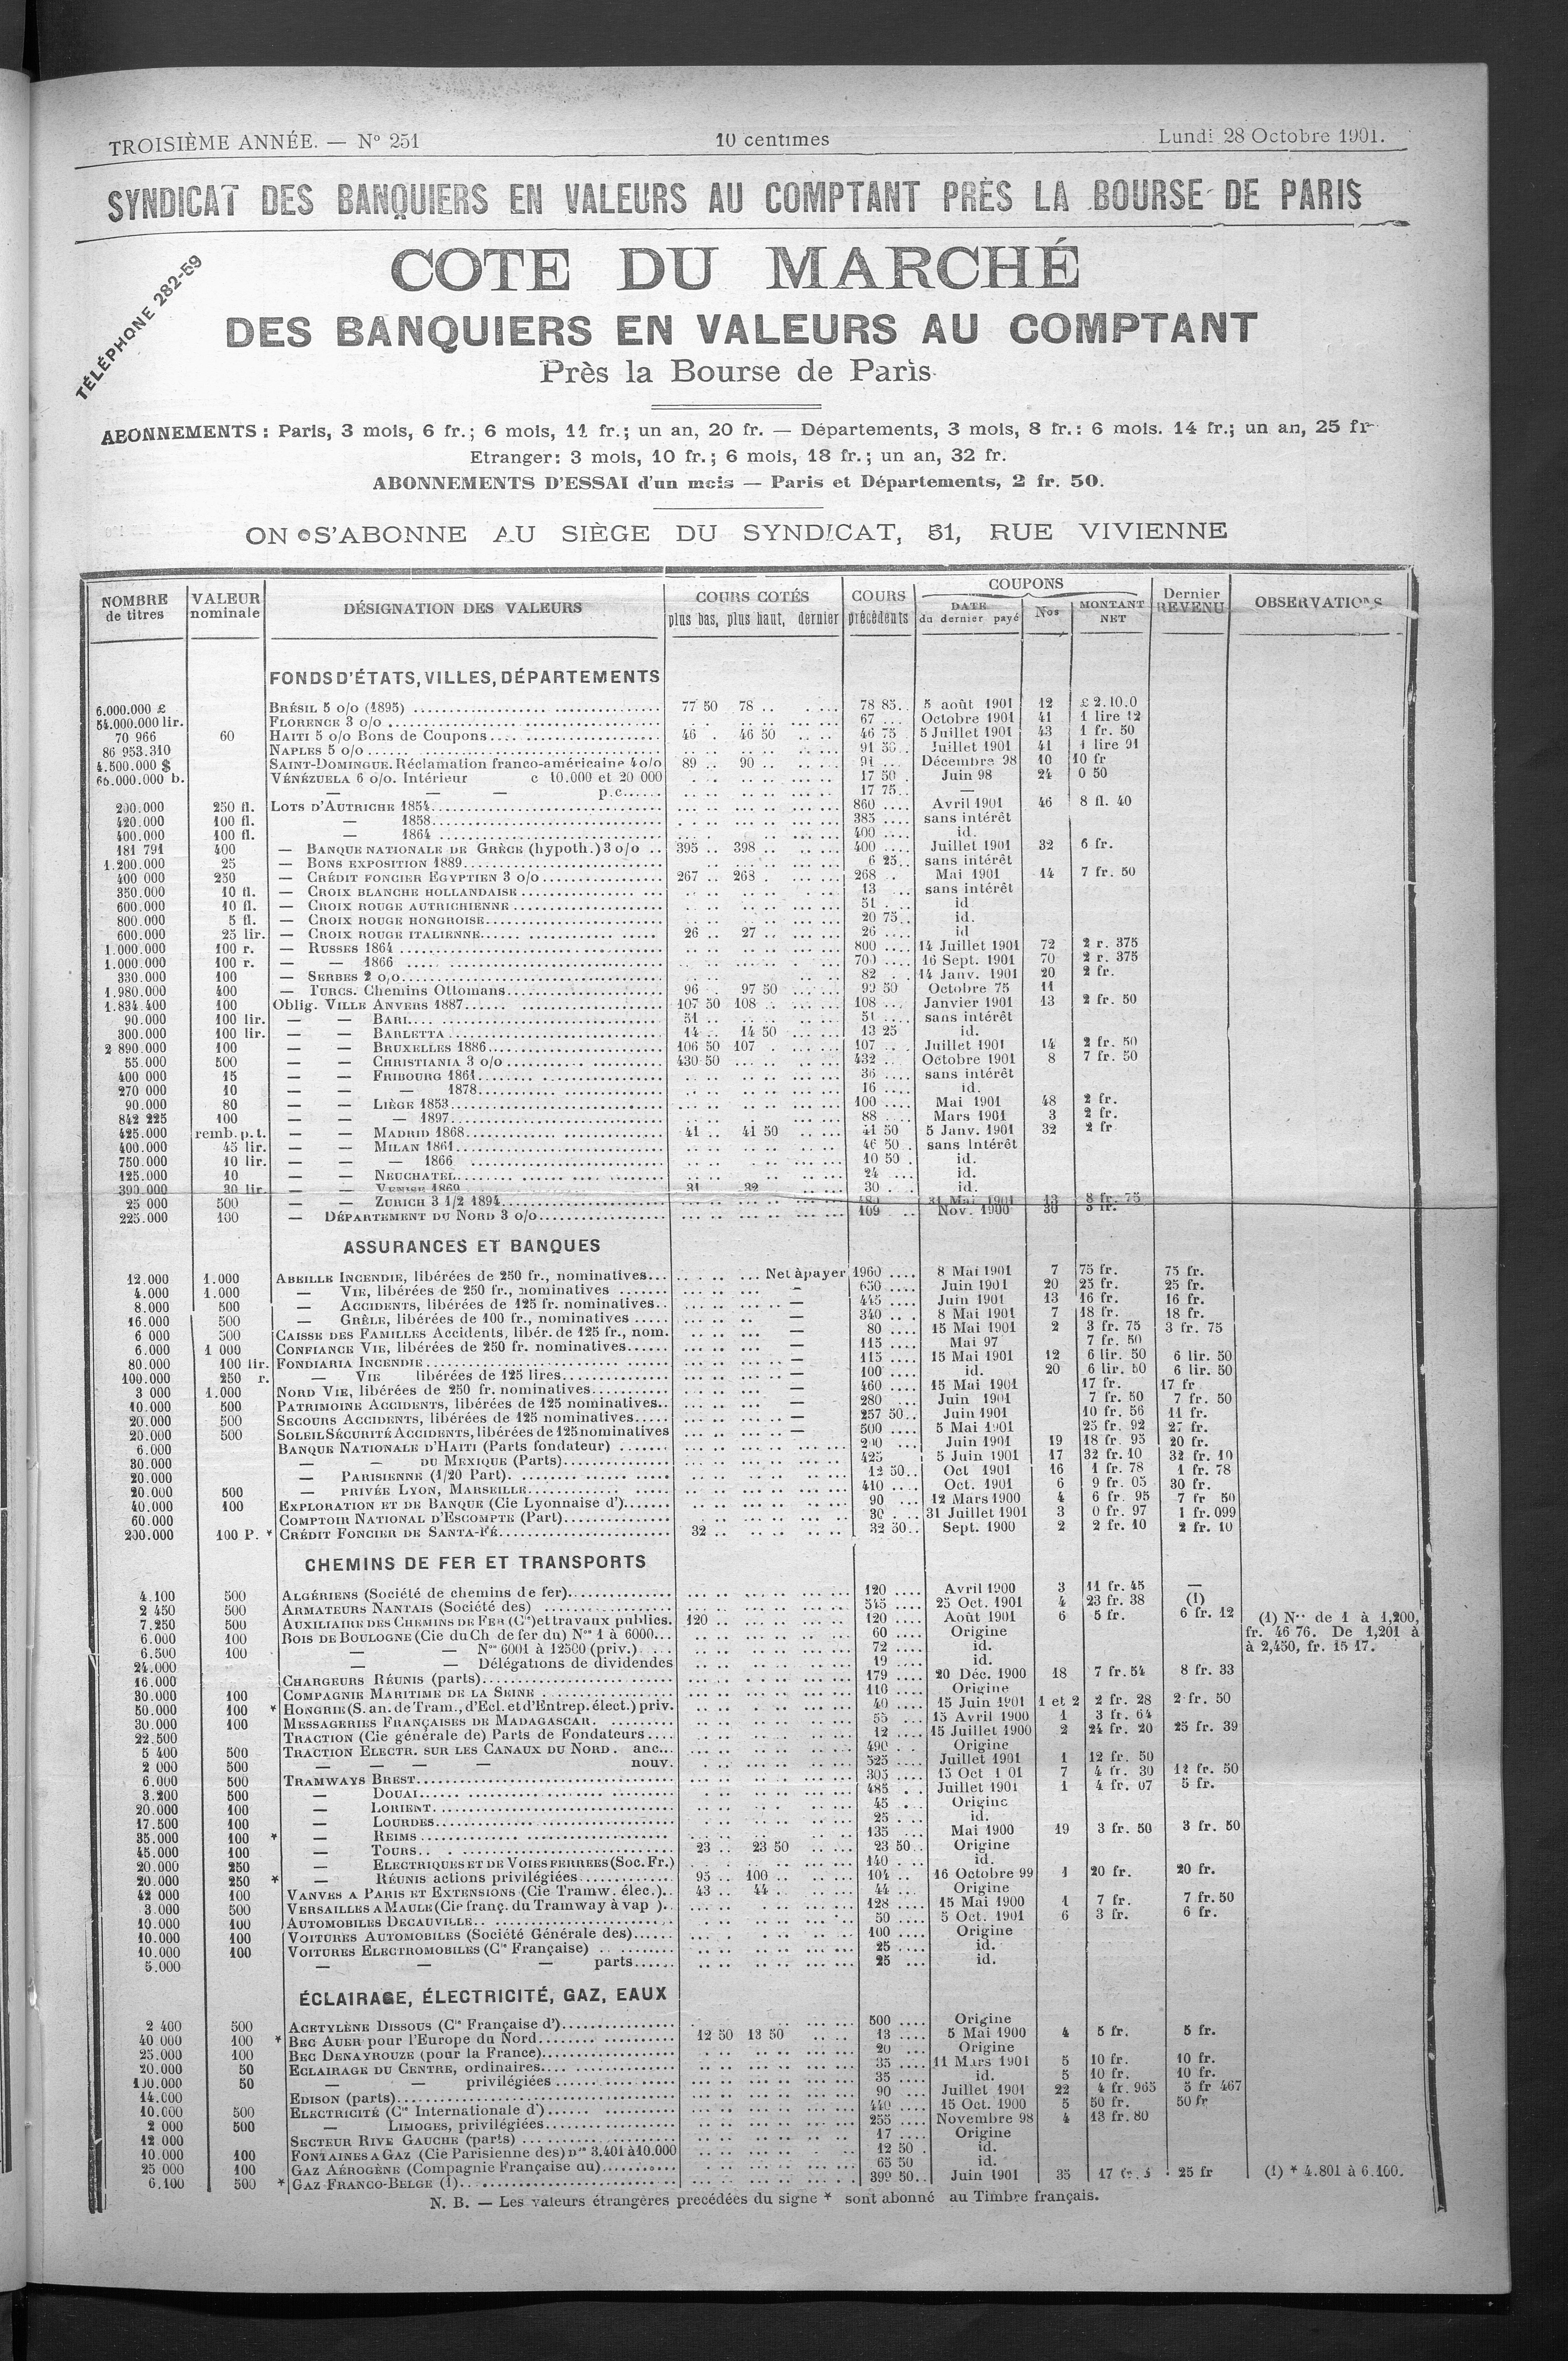 TROISIÈME ANNÉE. — N° 251 10 centimes Lundi 28 Octobre 1901.
SYNDICAT DES BANQUIERS EN VALEURS AU COMPTANT PRÈS LA BOURSE DE PARIS
TÉLÉPHONE 282-59
COTE DU MARCHÉ
DES BANQUIERS EN VALEURS AU COMPTANT
Près la Bourse de Paris
ABONNEMENTS : Paris, 3 mois, 6 fr.; 6 mois, 11 fr.; un an, 20 fr. — Départements, 3 mois, 8 fr.: 6 mois. 14 fr.; un an, 25 fr
Etranger: 3 mois, 10 fr.; 6 mois, 18 fr.; un an, 32 fr.
ABONNEMENTS D'ESSAI d'un mois — Paris et Départements, 2 fr. 50.
ON S'ABONNE AU SIÈGE DU SYNDICAT, 31, RUE VIVIENNE
NOMBRE de titres | VALEUR nominale | DÉSIGNATION DES VALEURS | COURS COTÉS plus bas, plus haut, dernier | COURS précédents | COUPONS DATE du dernier payé | Nos | MONTANT NET | Dernier REVENU | OBSERVATIONS
FONDS D'ÉTATS, VILLES, DÉPARTEMENTS
6.000.000 £ BRÉSIL 5 o/o (1895) 77 50 78 .. 78 85 5 août 1901 12 £ 2.10.0
54.000.000 lir. FLORENCE 3 o/o 67 Octobre 1901 41 1 lire 12
70 966 60 HAITI 5 o/o Bons de Coupons 46 46 50 46 75 5 Juillet 1901 43 1 fr. 50
86 953.310 NAPLES 5 o/o 91 Juillet 1901 41 1 lire 91
4.500.000 $ SAINT-DOMINGUE. Réclamation franco-américaine 4 o/o 89 90 91 Décembre 98 10 10 fr
VÉNÉZUELA 6 o/o. Intérieur c 10.000 et 20 000 17 50 Juin 98 24 0 50
— — — p.c. 17 75 —
200.000 250 fl. LOTS D'AUTRICHE 1854 860 Avril 1901 46 8 fl. 40
420.000 100 fl. — 1858 385 sans intérêt
400.000 100 fl. — 1864 400 id.
181 791 400 — BANQUE NATIONALE DE GRÈCE (hypoth.) 3 o/o 395 398 400 Juillet 1901 32 6 fr.
1.200.000 25 — BONS EXPOSITION 1889 6 25 sans intérêt
400 000 250 — CRÉDIT FONCIER EGYPTIEN 3 o/o 267 268 268 Mai 1901 14 7 fr. 50
350.000 10 fl. — CROIX BLANCHE HOLLANDAISE 13 sans intérêt
600.000 10 fl. — CROIX ROUGE AUTRICHIENNE 51 id
800.000 5 fl. — CROIX ROUGE HONGROISE 20 75 id.
600.000 25 lir. — CROIX ROUGE ITALIENNE 26 27 26 id
1.000.000 100 r. — RUSSES 1864 800 14 Juillet 1901 72 2 r. 375
1.000.000 100 r. — — 1866 700 16 Sept. 1901 70 2 r. 375
330.000 100 — SERBES 2 o/o 82 14 Janv. 1901 20 2 fr.
1.980.000 400 — TURCS. Chemins Ottomans 96 97 50 99 50 Octobre 75 11
1.834.400 100 Oblig. VILLE ANVERS 1887 107 50 108 108 Janvier 1901 13 2 fr. 50
90.000 100 lir. — — BARI 51 51 sans intérêt
300.000 100 lir. — — BARLETTA 14 14 50 13 25 id.
2 890.000 100 — — BRUXELLES 1886 106 50 107 107 Juillet 1901 14 2 fr. 50
55.000 500 — — CHRISTIANIA 3 o/o 430 50 432 Octobre 1901 8 7 fr. 50
400 000 15 — — FRIBOURG 1861 36 sans intérêt
270 000 10 — — — 1878 16 id.
90.000 80 — — LIÈGE 1853 100 Mai 1901 48 2 fr.
842 225 100 — — — 1897 88 Mars 1901 3 2 fr.
425.000 remb. p. t. — — MADRID 1868 41 41 50 41 50 5 Janv. 1901 32 2 fr
400.000 45 lir. — — MILAN 1861 46 50 sans Intérêt
750.000 10 lir. — — — 1866 10 50 id.
125.000 10 — — NEUCHATEL 24 id.
390.000 30 lir. — — VENISE 1869 31 32 30 id.
25 000 500 — — ZURICH 3 1/2 1894 31 Mai 1901 13 8 fr. 75
225.000 100 — DÉPARTEMENT DU NORD 3 o/o 109 Nov. 1900 30
ASSURANCES ET BANQUES
12.000 1.000 ABEILLE INCENDIE, libérées de 250 fr., nominatives Net à payer 1960 8 Mai 1901 7 75 fr. 75 fr.
4.000 1.000 — VIE, libérées de 250 fr., nominatives — 650 Juin 1901 20 25 fr. 25 fr.
8.000 500 — ACCIDENTS, libérées de 125 fr. nominatives — 445 Juin 1901 13 16 fr. 16 fr.
16.000 500 — GRÊLE, libérées de 100 fr., nominatives — 340 8 Mai 1901 7 18 fr. 18 fr.
6 000 500 CAISSE DES FAMILLES Accidents, libér. de 125 fr., nom. — 80 15 Mai 1901 2 3 fr. 75 3 fr. 75
6.000 1 000 CONFIANCE VIE, libérées de 250 fr. nominatives — 115 Mai 97 7 fr. 50
80.000 100 lir. FONDIARIA INCENDIE — 115 15 Mai 1901 12 6 lir. 50 6 lir. 50
100.000 250 r. — VIE libérées de 125 lires — 100 id. 20 6 lir. 50 6 lir. 50
3 000 1.000 NORD VIE, libérées de 250 fr. nominatives — 460 15 Mai 1901 17 fr. 17 fr
10.000 500 PATRIMOINE ACCIDENTS, libérées de 125 nominatives — 280 Juin 1901 7 fr. 50 7 fr. 50
20.000 500 SECOURS ACCIDENTS, libérées de 125 nominatives — 257 50 Juin 1901 10 fr. 56 11 fr.
20.000 500 SOLEIL SÉCURITÉ ACCIDENTS, libérées de 125 nominatives — 500 5 Mai 1901 25 fr. 92 27 fr.
6.000 BANQUE NATIONALE D'HAITI (Parts fondateur) 200 Juin 1901 19 18 fr. 95 20 fr.
30.000 — — DU MEXIQUE (Parts) 425 5 Juin 1901 17 32 fr. 10 32 fr. 10
20.000 — PARISIENNE (1/20 Part) 12 50 Oct 1901 16 1 fr. 78 1 fr. 78
20.000 500 — PRIVÉE LYON, MARSEILLE 410 Oct. 1901 6 9 fr. 05 30 fr.
40.000 100 EXPLORATION ET DE BANQUE (Cie Lyonnaise d') 90 12 Mars 1900 4 6 fr. 95 7 fr 50
60.000 COMPTOIR NATIONAL D'ESCOMPTE (Part) 30 31 Juillet 1901 3 0 fr. 97 1 fr. 099
200.000 100 P. * CRÉDIT FONCIER DE SANTA-FÉ 32 32 50 Sept. 1900 2 2 fr. 10 2 fr. 10
CHEMINS DE FER ET TRANSPORTS
4.100 500 ALGÉRIENS (Société de chemins de fer) 120 Avril 1900 3 11 fr. 45 —
2 450 500 ARMATEURS NANTAIS (Société des) 545 25 Oct. 1901 4 23 fr. 38 (1)
7.250 500 AUXILIAIRE DES CHEMINS DE FER (Cie) et travaux publics. 120 120 Août 1901 6 5 fr. 6 fr. 12
(1) Nos de 1 à 1,200, fr. 46 76. De 1,201 à
à 2,450, fr. 15 17.
6.000 100 BOIS DE BOULOGNE (Cie du Ch de fer du) Nos 1 à 6000 60 Origine
6.500 100 — — Nos 6001 à 12500 (priv.) 72 id.
24.000 — — Délégations de dividendes 19 id.
16.000 CHARGEURS RÉUNIS (parts) 179 20 Déc. 1900 18 7 fr. 54 8 fr. 33
30.000 100 COMPAGNIE MARITIME DE LA SEINE 110 Origine
50.000 100 * HONGRIE (S. an. de Tram., d'Ecl. et d'Entrep. élect.) priv. 40 15 Juin 1901 1 et 2 2 fr. 28 2 fr. 50
30.000 100 MESSAGERIES FRANÇAISES DE MADAGASCAR. 55 15 Avril 1900 1 3 fr. 64
22.500 TRACTION (Cie générale de) Parts de Fondateurs 12 15 Juillet 1900 2 24 fr. 20 25 fr. 39
5 400 500 TRACTION ELECTR. SUR LES CANAUX DU NORD. anc. 490 Origine
2 000 500 — — — — nouv. 525 Juillet 1901 1 12 fr. 50
6.000 500 TRAMWAYS BREST 305 15 Oct 1 01 7 4 fr. 30 12 fr. 50
3.200 500 — DOUAI 485 Juillet 1901 1 4 fr. 07 5 fr.
20.000 100 — LORIENT 45 Origine
17.500 100 — LOURDES 25 id.
35.000 100 * — REIMS 135 Mai 1900 19 3 fr. 50 3 fr. 50
45.000 100 — TOURS 23 23 50 23 50 Origine
20.000 250 — ELECTRIQUES ET DE VOIES FERREES (Soc. Fr.) 140 id.
20.000 250 * — RÉUNIS actions privilégiées 95 100 104 16 Octobre 99 1 20 fr. 20 fr.
42 000 100 VANVES A PARIS ET EXTENSIONS (Cie Tramw. élec.) 43 44 44 Origine
3.000 500 VERSAILLES A MAULE (Cie franç. du Tramway à vap ). 128 15 Mai 1900 1 7 fr. 7 fr. 50
10.000 100 AUTOMOBILES DECAUVILLE 50 5 Oct. 1901 6 3 fr. 6 fr.
10.000 100 VOITURES AUTOMOBILES (Société Générale des) 100 Origine
10.000 100 VOITURES ELECTROMOBILES (Cie Française) 25 id.
5.000 — — — parts 25 id.
ÉCLAIRAGE, ÉLECTRICITÉ, GAZ, EAUX
2 400 500 ACETYLÈNE DISSOUS (Cie Française d') 500 Origine
40 000 100 * BEC AUER pour l'Europe du Nord 12 50 13 50 13 5 Mai 1900 4 5 fr. 5 fr.
25.000 100 BEC DENAYROUZE (pour la France) 20 Origine
20.000 50 ECLAIRAGE DU CENTRE, ordinaires 35 11 Mars 1901 5 10 fr. 10 fr.
100.000 50 — — privilégiées 35 id. 5 10 fr. 10 fr.
14.000 EDISON (parts) 90 Juillet 1901 22 4 fr. 965 5 fr 467
10.000 500 ELECTRICITÉ (Cie Internationale d') 440 15 Oct. 1900 5 50 fr. 50 fr
2 000 500 — LIMOGES, privilégiées 255 Novembre 98 4 13 fr. 80
12.000 SECTEUR RIVE GAUCHE (parts) 17 Origine
10.000 100 FONTAINES A GAZ (Cie Parisienne des) nos 3.401 à 10.000 12 50 id.
25 000 100 GAZ AÉROGÈNE (Compagnie Française du) 65 50 id.
6.100 500 * GAZ FRANCO-BELGE (1) 399 50 Juin 1901 35 17 25 fr (1) * 4.801 à 6.100.
N. B. — Les valeurs étrangères precédées du signe * sont abonné au Timbre français.